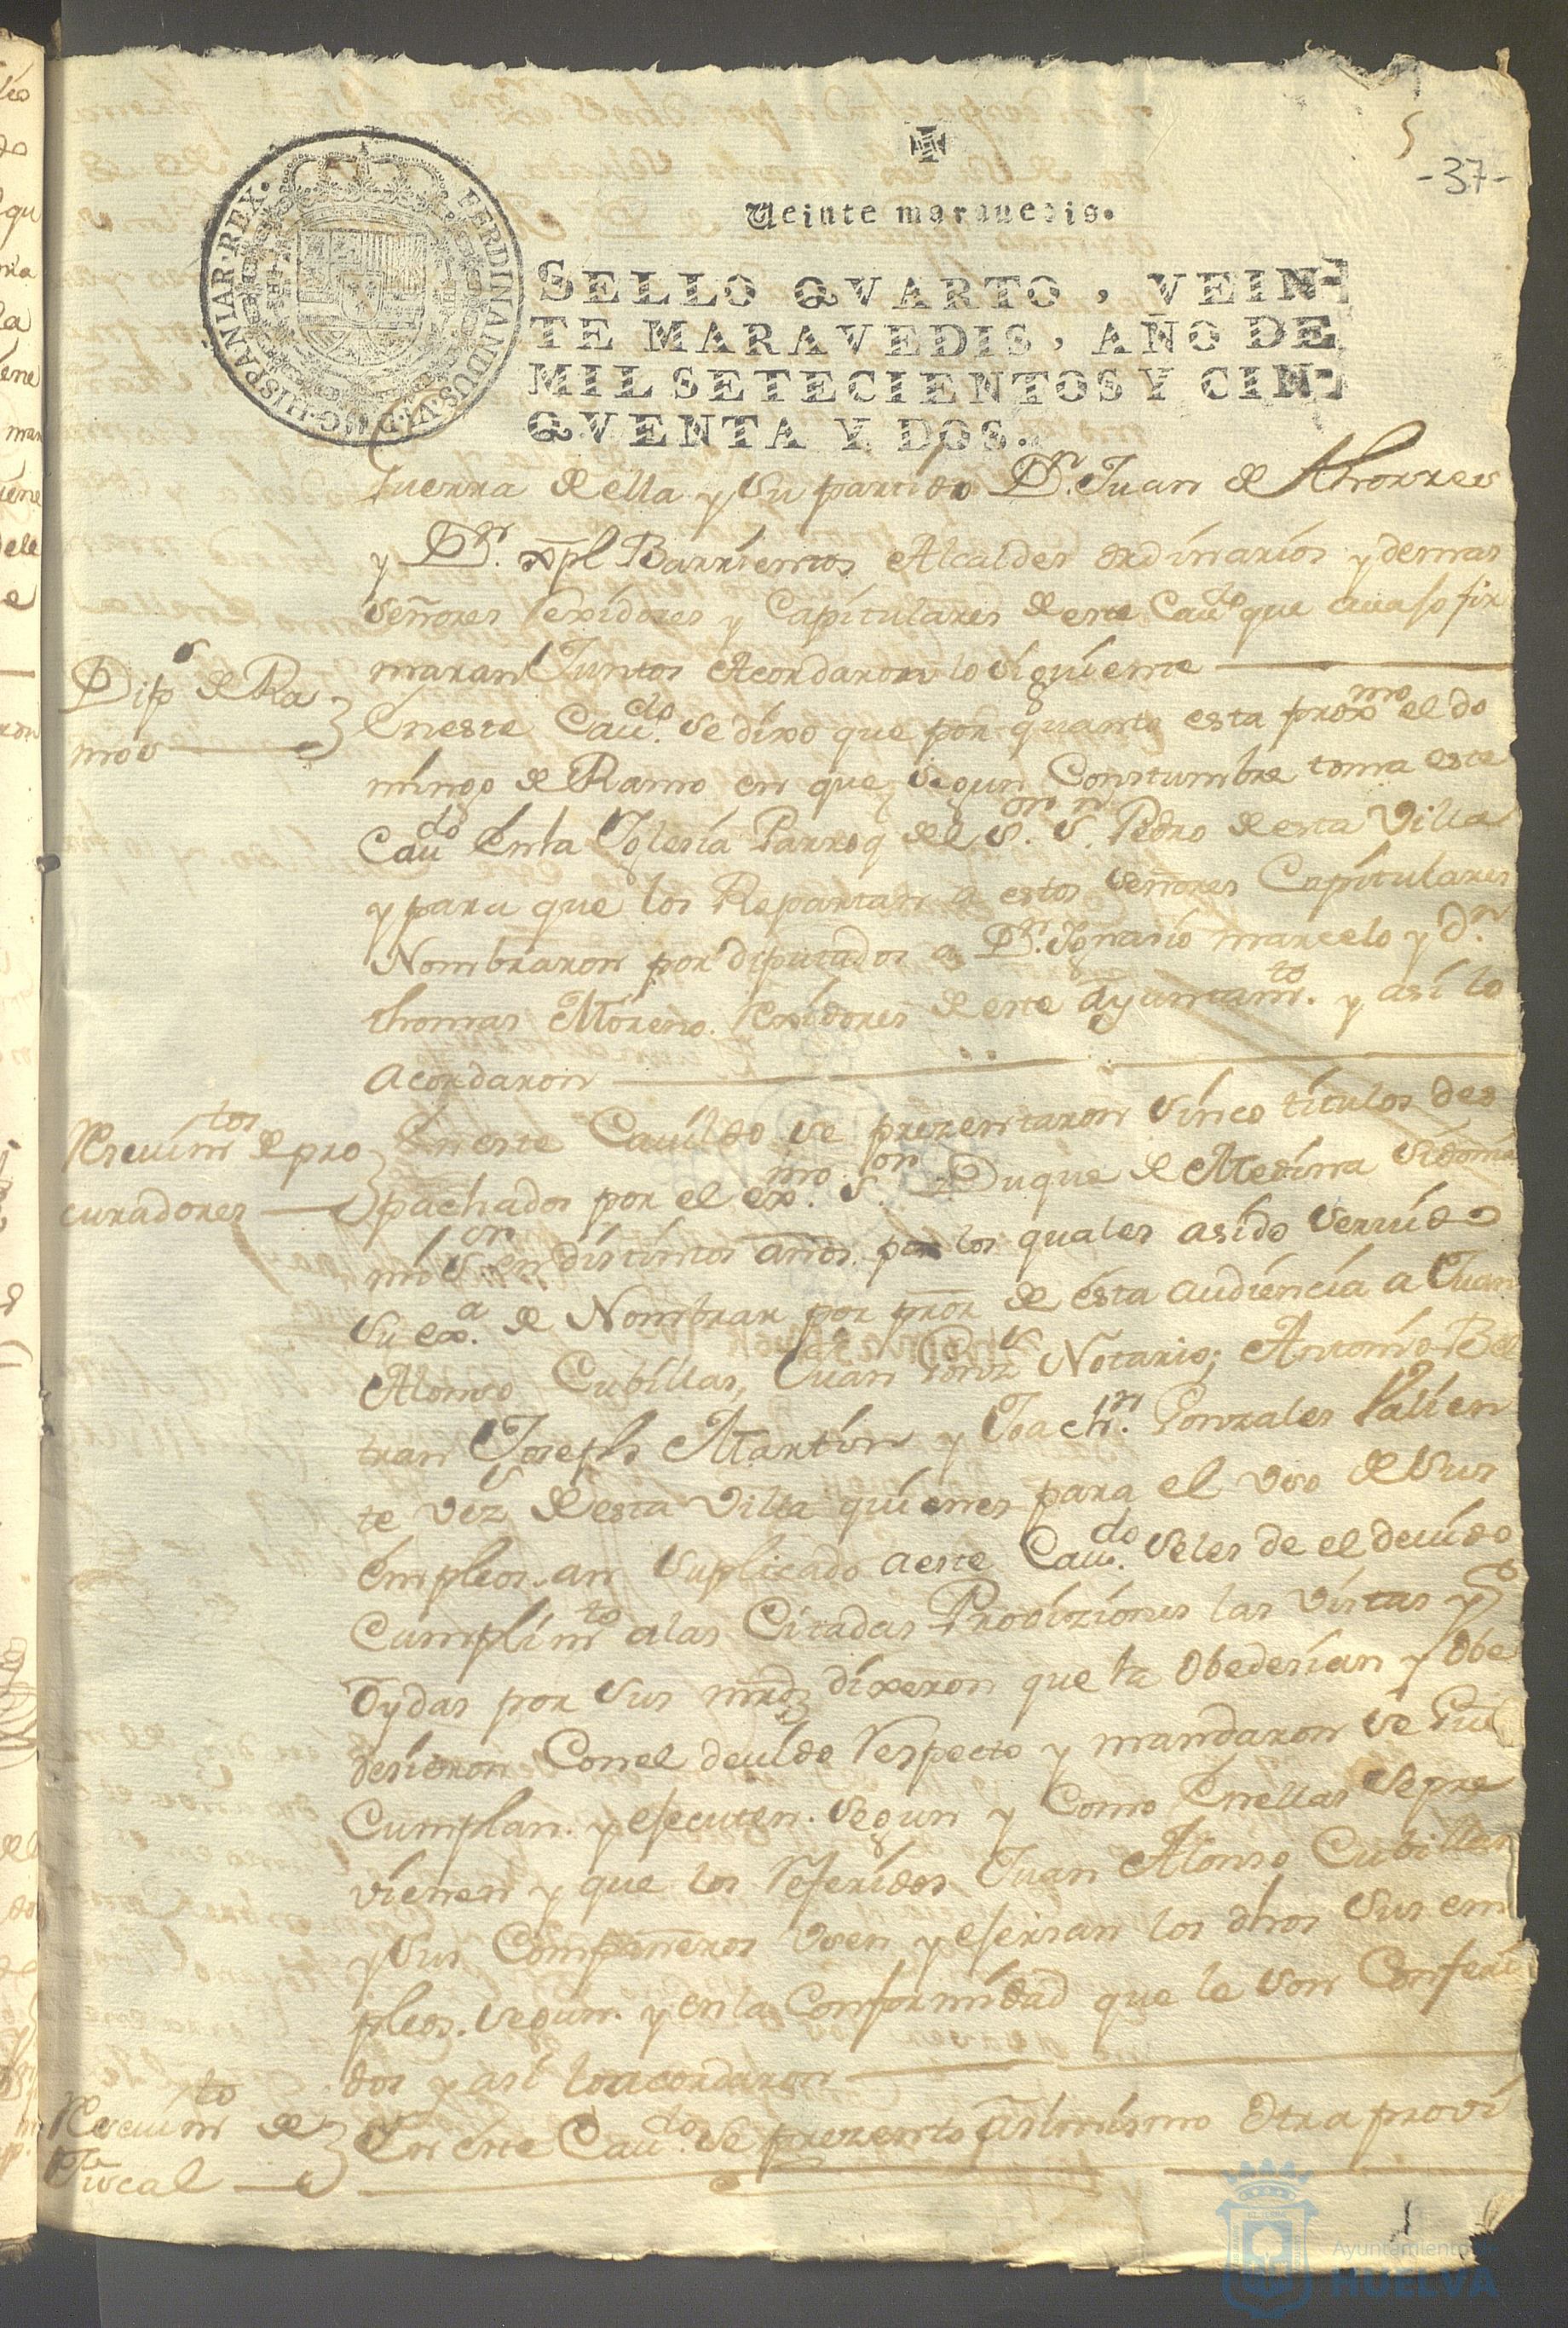 5
-37-
Veinte maravedis.
FERDINANDUS·VI·D·G·HISPANIAR·REX·
SELLO QVARTO, VEIN-
TE MARAVEDIS, AÑO DE
MIL SETECIENTOS Y CIN-
QVENTA Y DOS.
Guerra de ella y su partido Dn. Juan de Thorres
y Dn. Xpl Barrientos Alcaldes ordinarios y demas
señores Rexidores y Capitulares de este Caudo que auaso fir
maran Juntos Acordaron lo siguiente
Dips de Ra
mos
En este Caudo. se dixo que por quanto esta proxmo el do
mingo de Ramo en que segun Constumbre toma este
Caudo En la Yglesia Parroq del Sor. Sn. Pedro de esta Villa
y para que los Repartan a estos señores Capitulares
Nombraron por diputados a Dn. Ygnasio marcelo y Dn.
thomas Moreno Rexidores de este Ayuntamto. y asi lo
acordaron
Resiuimtos de pro
curadores
En este Cauildo se presentaron sinco titulos des
pachados por el exmo. Sor. Duque de Medina Sidonia
mi Sor en distintos años por los quales asido seruido
su exa. de Nombrar por pror de esta audiencia a Juan
Alonso Cubillas, Juan Gonzs Notario; Antonio Bel
tran Joseph Martin y Joachn. Gonzales Valien
te vezs de esta Villa quienes para el vso de sus
empleos an suplicado a este Caudo. se les de el deuido
Cumplimto a las Citadas Prouiziones las vistas y
Oydas por sus mrdz dixeron que la Obedesian y Obe
desieron Con el deuido Respecto y mandaron se Gu
Cumplan y esecuten segun y Como En ellas se pre
vienen y que los Referidos Juan Alonso Cubillas
y sus Compañeros vsen y esersan los dhos sus em
pleos segun y en la Conformidad que le son Conferi
dos y asi lo acordaron
Resiuimto de
Fiscal
En este Caudo. se presento asimismo Otra proui
Ayuntamiento de
HUELVA